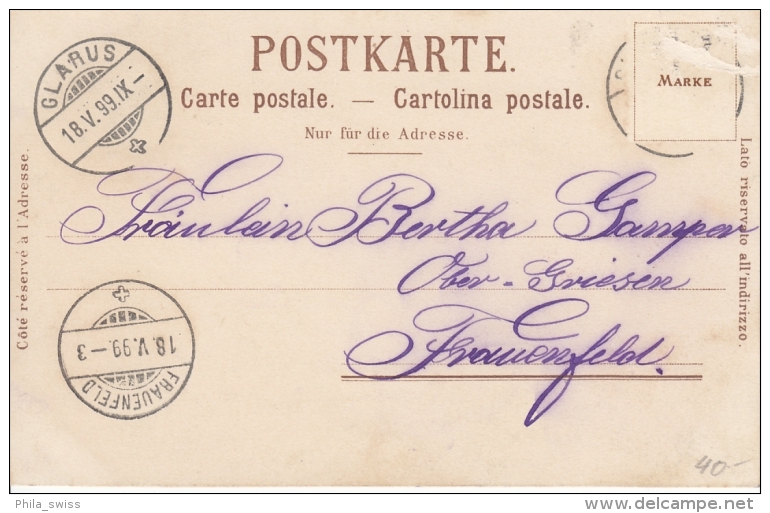 POSTKARTE.
Carte postale. — Cartolina postale.
Nur für die Adresse.
MARKE
GLARUS
18.V.99.IX-
Côté réservé à l'Adresse.
Lato riservato all'indirizzo.
Fräulein Bertha Gamper
Ober-Griesen
Frauenfeld.
18.V.99.-3
FRAUENFELD
40-
Phila_swiss
delcampe.net